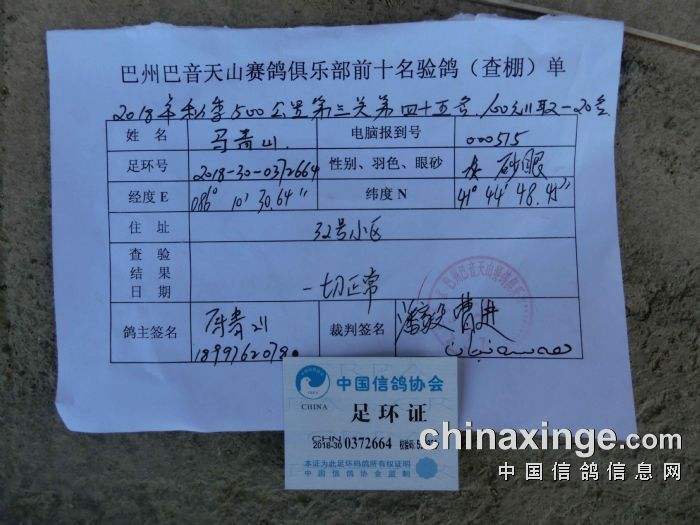 巴州巴音天山赛鸽俱乐部前十名验鸽（查棚）单
2018年秋季500公里第三关第四十五名 取一20名
姓 名 马青山 电脑报到号 000515
足环号 2018-30-0372664 性别、羽色、眼砂 灰 砂眼
经度E 086° 10′ 30.64″ 纬度N 41° 44′ 48.45″
住 址 32号小区
查 验
结 果
日 期
一切正常
鸽主签名 裁判签名 曹进
中国信鸽协会
CHINA
足环证
CHN
2018-30 0372664
本证为此足环码鸽所有权证明
中国信鸽协会监制
chinaxinge.com
中国信鸽信息网